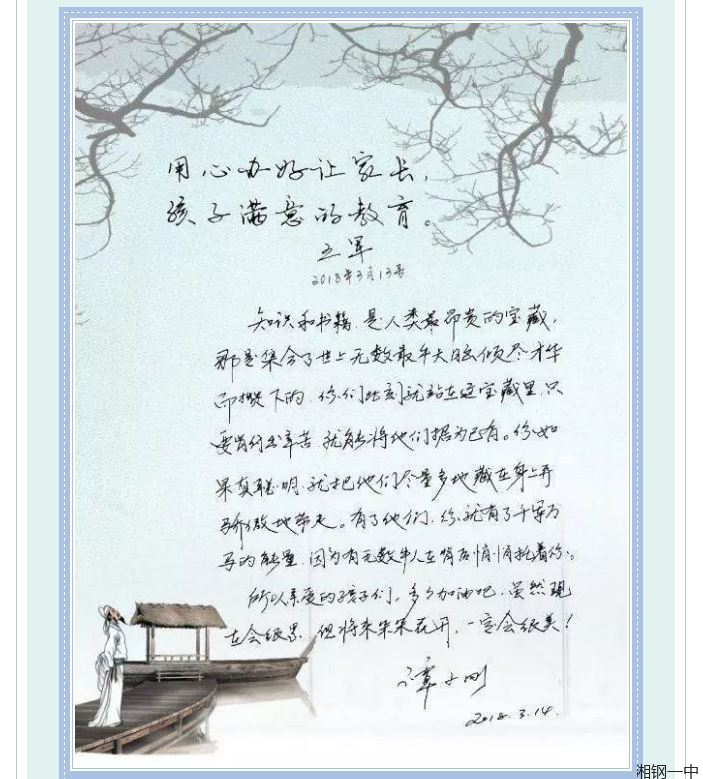 用心办好让家长，
孩子满意的教育。
王军
2018年3月13号
知识和书籍，是人类最昂贵的宝藏，
那是集合了世上无数最牛大脑倾尽才华
而攒下的，你们此刻就站在这宝藏里，只
要肯付出辛苦，就能将他们据为己有。你如
果真聪明，就把他们尽量多地藏在身上并
骄傲地带走。有了他们，你就有了千军万
马的能量，因为有无数牛人在背后悄悄托着你。
所以亲爱的孩子们，多多加油吧，虽然现
在会很累，但将来朵朵花开，一定会很美！
谭小刚
2018.3.14.
湘钢一中